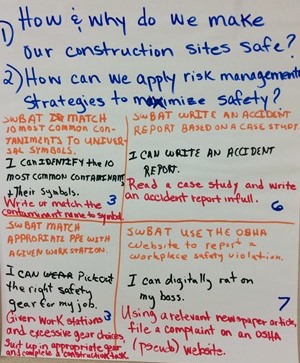 1) How & why do we make
our construction sites safe?
2) How can we apply risk management
strategies to maximize safety?
SWBAT MATCH
10 MOST COMMON CON-
TANIMENTS TO UNIVER-
SAL SYMBOLS.
I can IDENTIFY the 10
MOST COMMON CONTAMINANTS
+ Their Symbols.
Write or match the
contaminant name to symbol.
3
SWBAT WRITE AN ACCIDENT
REPORT BASED ON A CASE STUDY.
I CAN WRITE AN ACCIDENT
REPORT.
Read a case study and write
an accident report in full.
6
SWBAT MATCH
APPROPRIATE PPE WITH
A GIVEN WORK STATION.
I CAN Pick out
the right safety
gear for my job.
3
Given work stations
and excessive gear choices,
Suit up in appropriate gear
and complete a construction task
SWBAT USE THE OSHA
Website to report a
workplace safety violation.
I can digitally rat on
my boss.
7
Using a relevant newspaper article,
file a complaint on an OSHA
(pseudo) website.